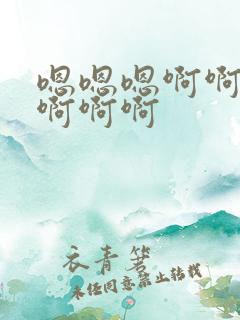 嗯嗯嗯啊啊
啊啊啊
衣青箬
未经同意禁止转载